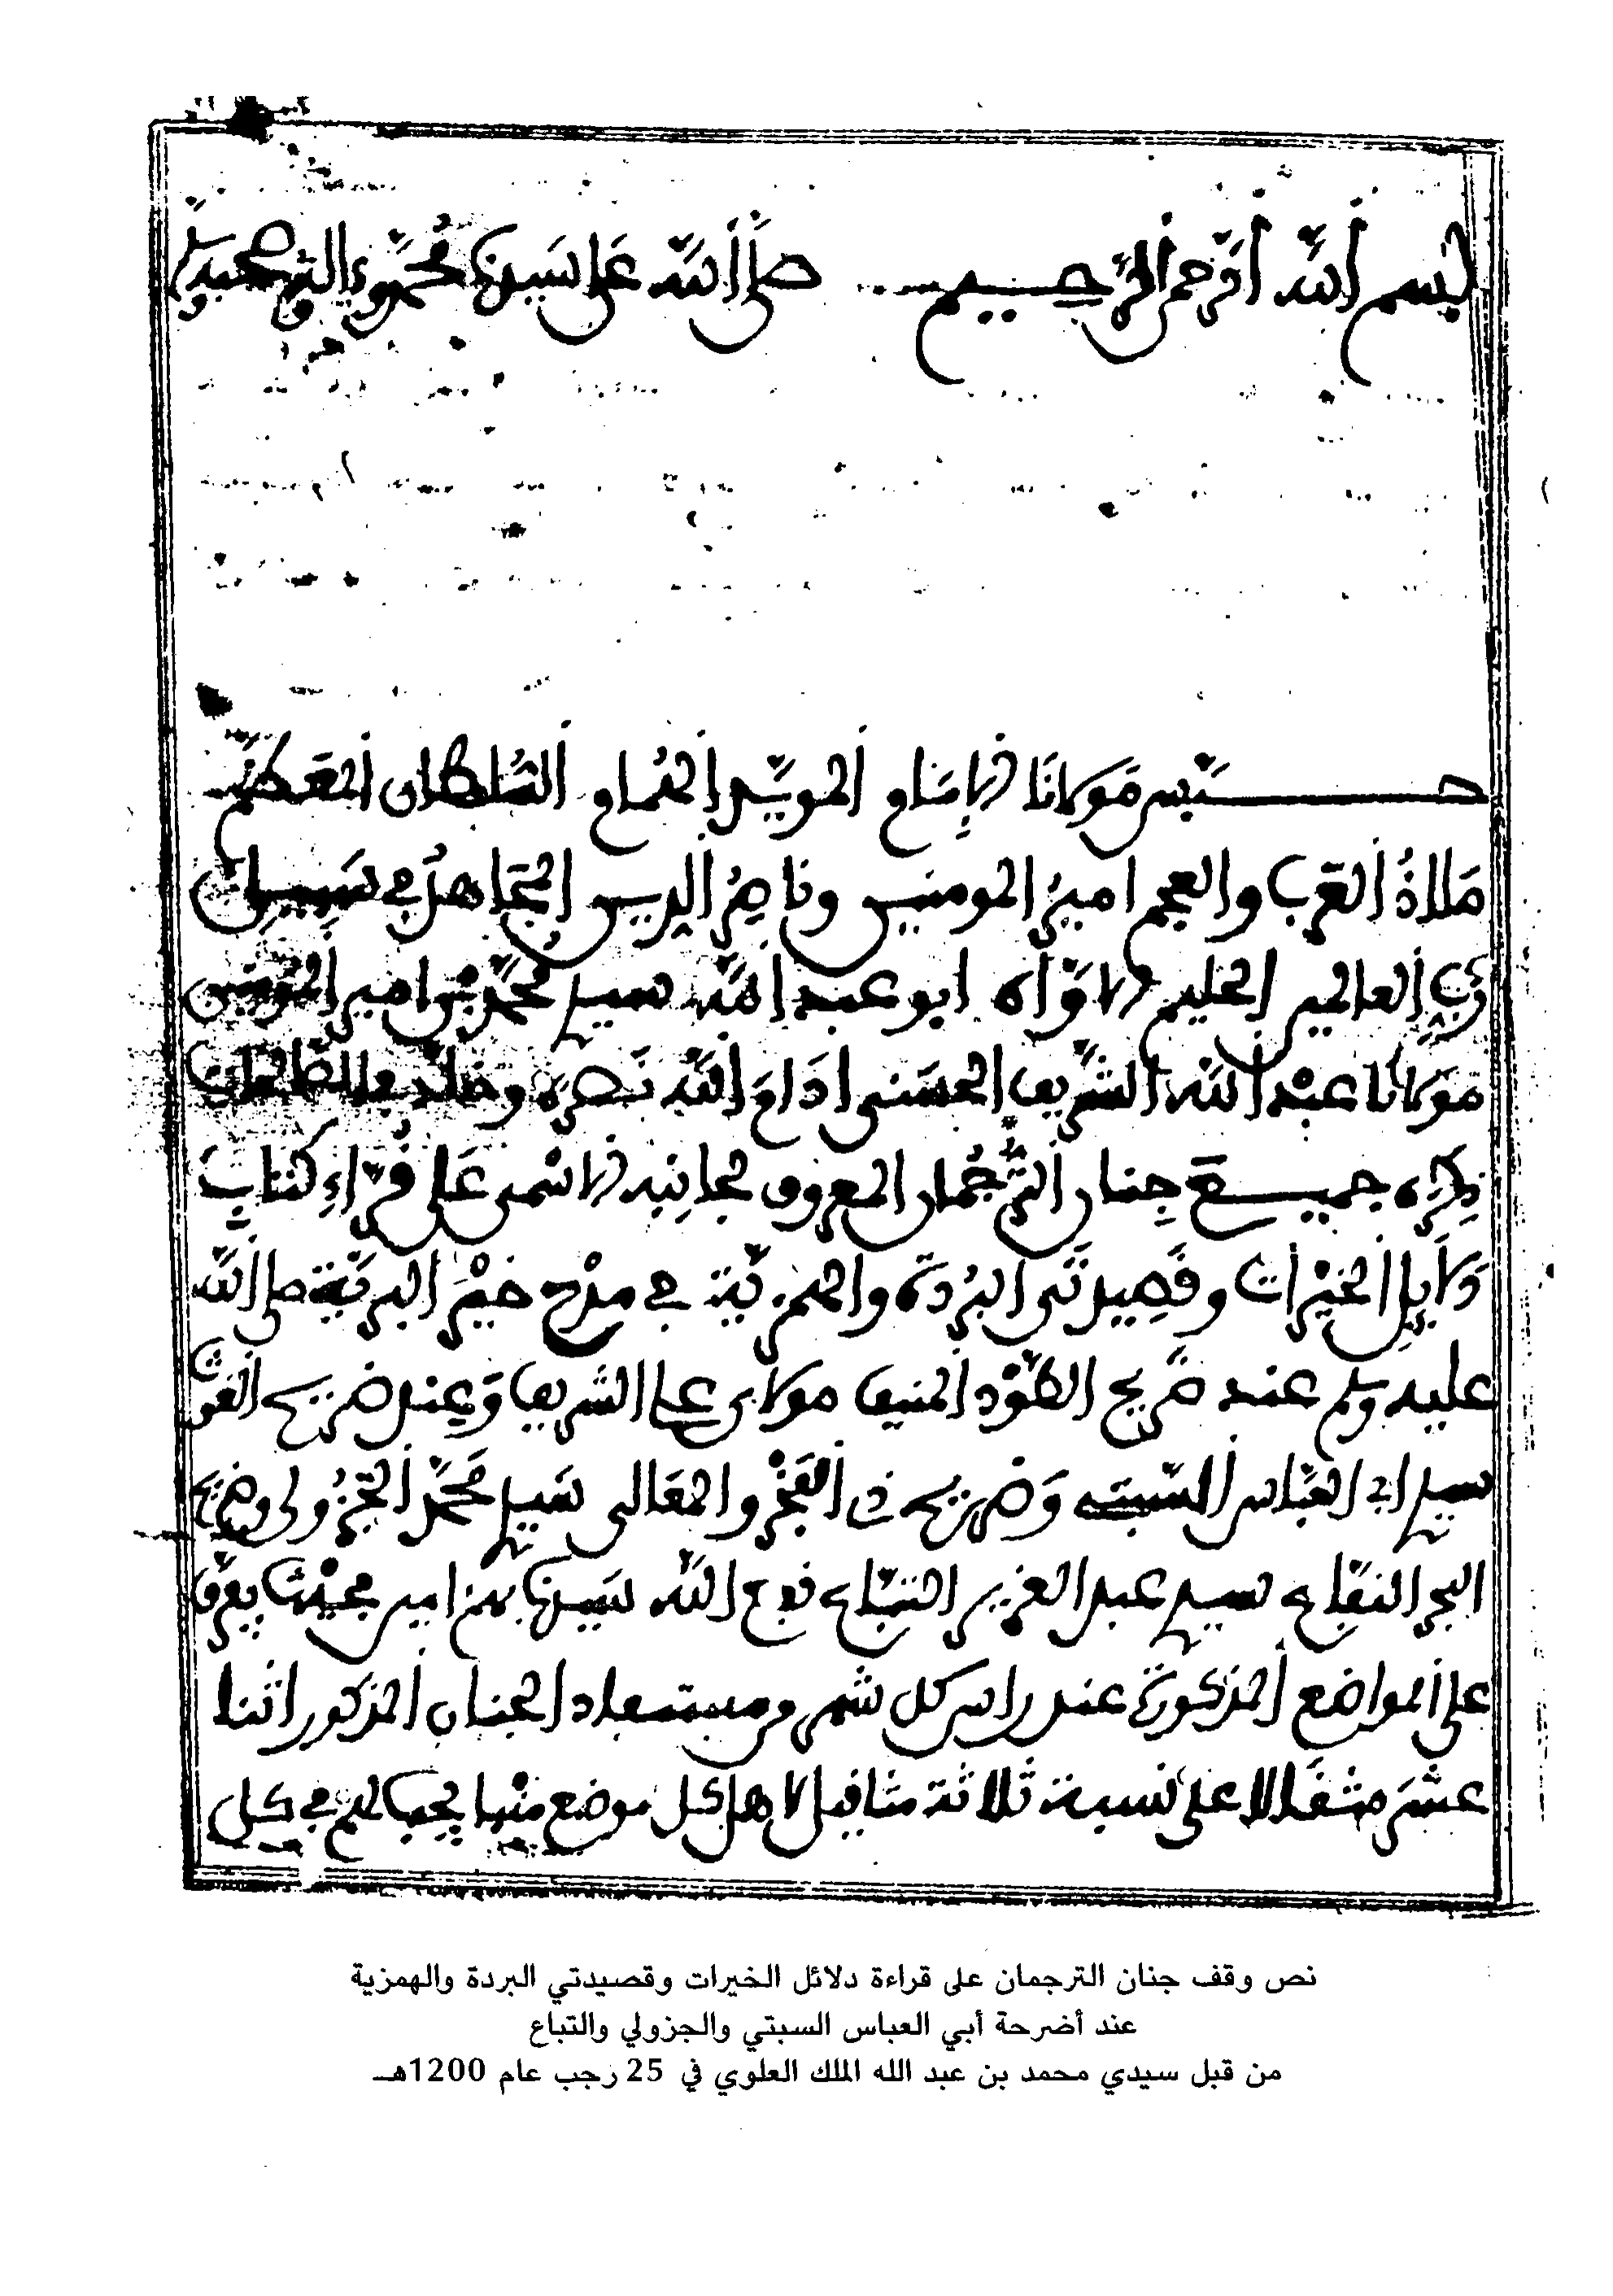 بسم الله الرحمن الرحيم صلى الله على سيدنا محمد وءاله وصحبه وسلم
حبس مولانا الإمام المويد الهمام السلطان المعظم
ملاذ العرب والعجم امير المومنين وناصر الدين المجاهد في سبيل
رب العالمين الحليم الاواه ابو عبد الله سيدي محمد بن امير المومنين
مولانا عبد الله الشريف الحسني ادام الله نصره وخلد في الصالحات
ذكره جميع جنان الترجمان المعروف بجانبه الاسمى على قراء كتاب
دلايل الخيرات وقصيدتي البردة والهمزية في مدح خير البرية صلى الله
عليه وسلم عند ضريح الطود المنيف مولاي علي الشريف وعند ضريح الغوث
سيدي ابي العباس السبتي وضريح ذي الفخر والمعالي سيدي محمد الجزولي وضريح
البحر النفاع سيدي عبد العزيز التباع نفع الله سيدنا بهم امين بحيث يفرق
على المواضع المذكورة عند راس كل شهر من مستفاد الجنان المذكور اثنا
عشر مثقالا على نسبة ثلاثة مثاقيل لاهل كل موضع منها يجب لهم في كل
نص وقف جنان الترجمان على قراءة دلائل الخيرات وقصيدتي البردة والهمزية
عند أضرحة أبي العباس السبتي والجزولي والتباع
من قبل سيدي محمد بن عبد الله الملك العلوي في 25 رجب عام 1200هـ